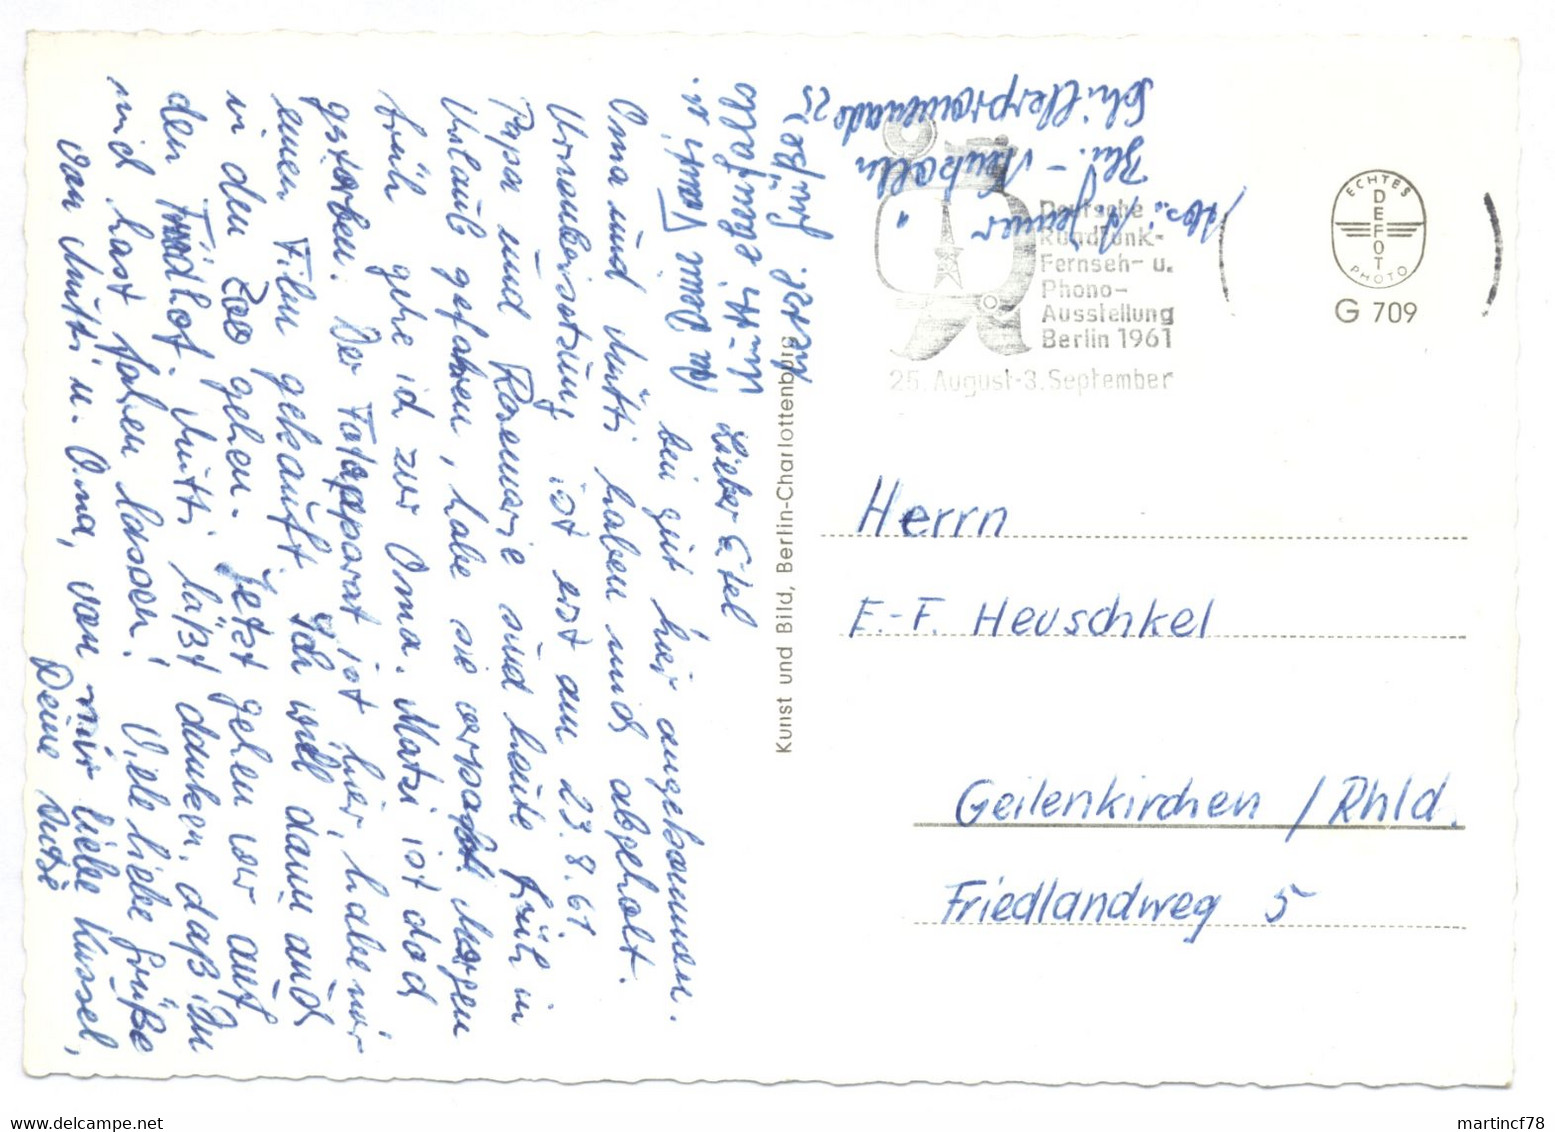 Lieber Etel
bin gut hier angekommen.
Oma und Mutti haben mich abgeholt.
ist erst am 23.8.61.
Papa und Rosemarie sind heute früh in
Urlaub gefahren, habe sie verpaßt. Morgen
früh gehe ich zur Oma. Matzi ist doch
gestorben. Der Fotoapparat ist hier, habe mir
einen Film gekauft. Ich will dann auch
in den Zoo gehen. Jetzt gehen wir auf
den Friedhof. Mutti läßt danken, daß Du
mich hast fahren lassen! Viele liebe Grüße
von Mutti u. Oma, von mir liebe Küssel,
Deine
Abs.: Jenner
Bln.-Neukölln
Schillerpromenade 25
Deutsche
Rundfunk-
Fernseh- u.
Phono-
Ausstellung
Berlin 1961
25. August-3. September
ECHTES
DEFOT
PHOTO
G 709
Kunst und Bild, Berlin-Charlottenburg
Herrn
E.-F. Heuschkel
Geilenkirchen / Rhld.
Friedlandweg 5
martincf78